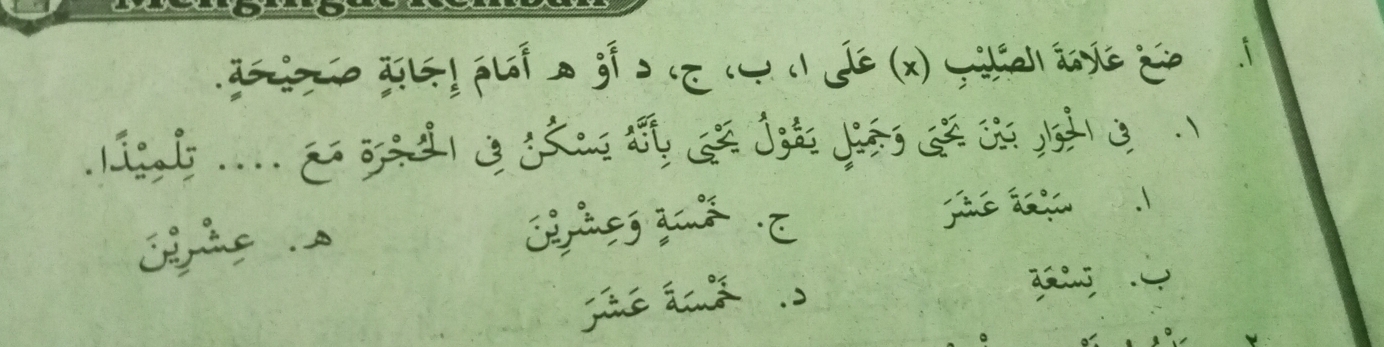 Mengingat Kembali
أ. ضَعْ عَلَامَةَ الصَّلِيْبِ (x) عَلَى ا، ب، ج، د أَوْ ه أَمَامَ إِجَابَةٍ صَحِيْحَةٍ.
١. فِى الْحِوَارِ بَيْنَ يَحْيَى وَجَمِيْلٍ يَقُوْلُ يَحْيَى بِأَنَّهُ يَسْكُنُ فِى الْحُجْرَةِ مَعَ .... تِلْمِيْذًا.
ا. سَبْعَةَ عَشَرَ ج. خَمْسَةٍ وَعِشْرِيْنَ ه. عِشْرِيْنَ
ب. تِسْعَةِ د. خَمْسَةَ عَشَرَ
٢.